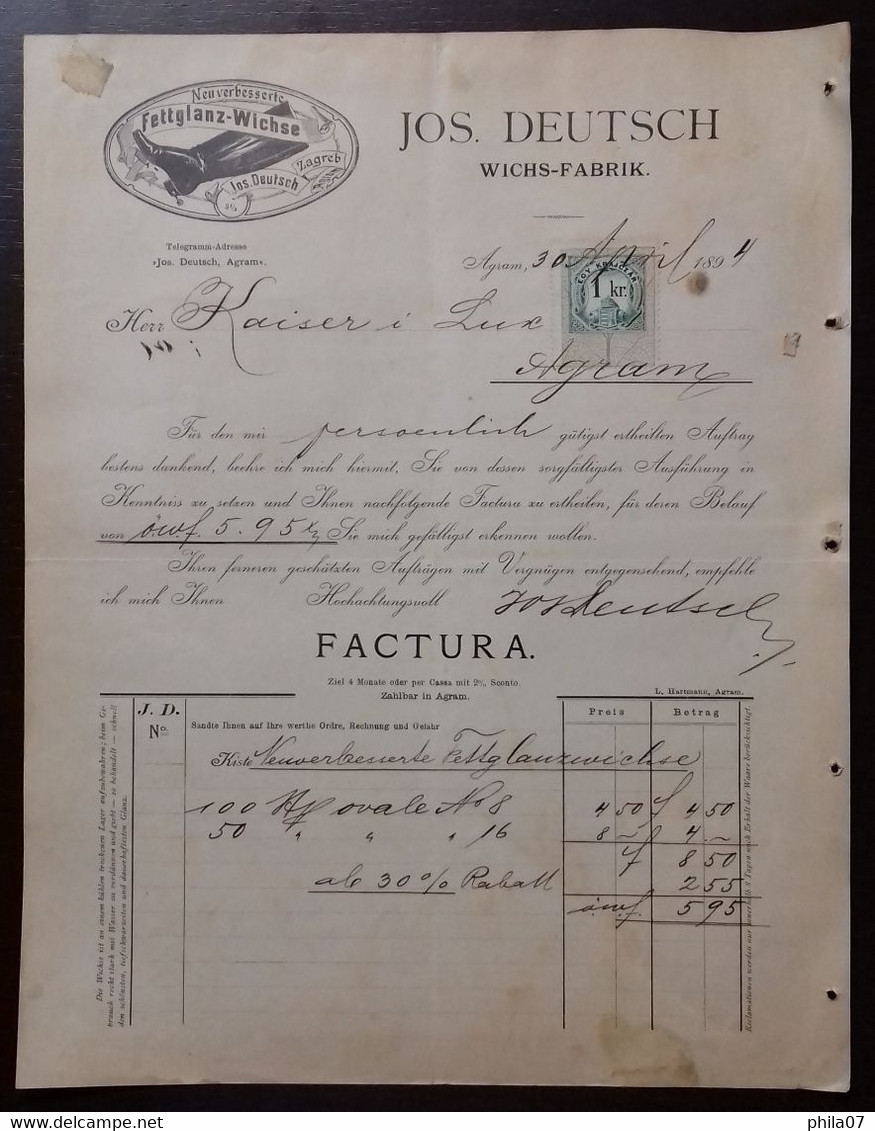 Neuverbesserte
Fettglanz-Wichse
Jos. Deutsch
Zagreb
JOS. DEUTSCH
WICHS-FABRIK.
Telegramm-Adresse
»Jos. Deutsch, Agram«.
Agram, 30 April 1894
EGY KRAJCZÁR
1 kr.
Herr Kaiser i Lux
Agram
Für den mir persoenlich gütigst ertheilten Auftrag
bestens dankend, beehre ich mich hiermit, Sie von dessen sorgfältigster Ausführung in
Kenntniss zu setzen und Ihnen nachfolgende Factura zu ertheilen, für deren Belauf
von ö.w.f. 5.95 Sie mich gefälligst erkennen wollen.
Ihren ferneren geschützten Aufträgen mit Vergnügen entgegensehend, empfehle
ich mich Ihnen Hochachtungsvoll Jos Deutsch
FACTURA.
Ziel 4 Monate oder per Cassa mit 2% Sconto.
Zahlbar in Agram.
L. Hartmann, Agram.
J. D.
No.
Sandte Ihnen auf Ihre werthe Ordre, Rechnung und Gefahr
Preis Betrag
Kiste Neuverbesserte Fettglanzwichse
100 ovale No 8 4 50 f 4 50
50 " " " 16 8 ~ 4 . ~
f 8 50
ab 30% Rabatt 2 55
ö.w.f. 5 95
Die Wichse ist an einem kühlen trockenen Lager aufzubewahren; beim Ge-
brauch recht stark mit Wasser zu verdünnen und gibt — so behandelt — schnell
den schönsten, tiefschwarzesten und dauerhaftesten Glanz.
Reclamationen werden nur innerhalb 8 Tagen nach Erhalt der Waare berücksichtigt.
phila07